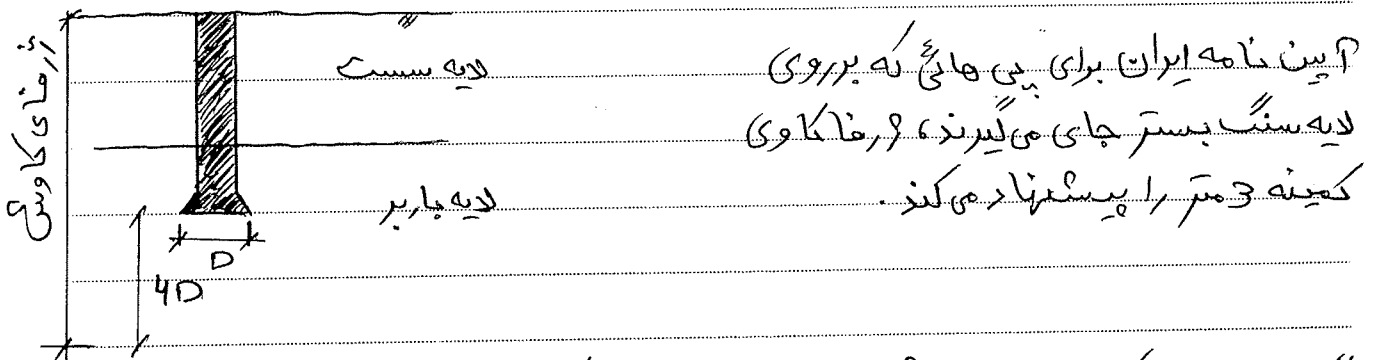 آیین نامه ایران برای پی هائی که بر روی
لایه سنگ بستر جای می‌گیرند، ژرفا کاوی
کمینه 3 متر را پیشنهاد می‌کند.
لایه سست
لایه باربر
ژرفای کاوش
D
4D